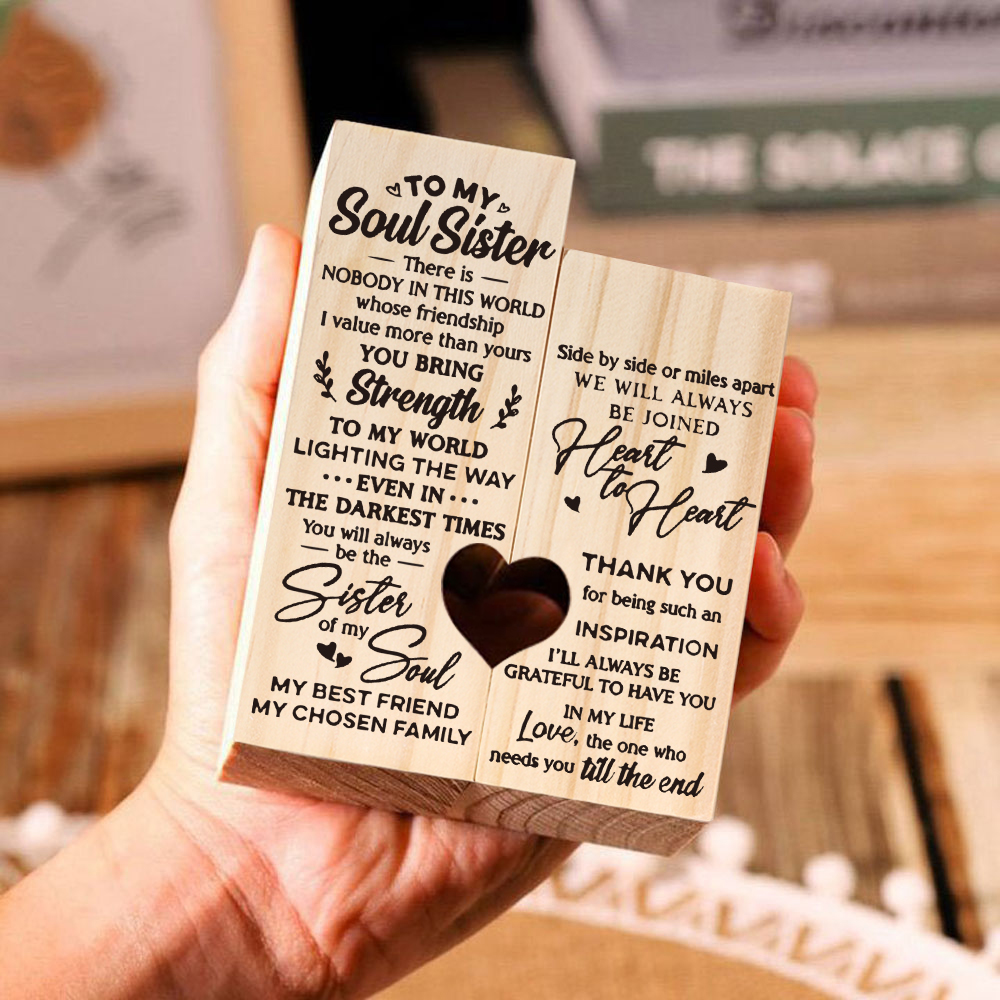 TO MY
Soul Sister
There is
NOBODY IN THIS WORLD
whose friendship
I value more than yours
YOU BRING
Strength
TO MY WORLD
LIGHTING THE WAY
EVEN IN
THE DARKEST TIMES
You will always
be the
Sister
of my
Soul
MY BEST FRIEND
MY CHOSEN FAMILY
Side by side or miles apart
WE WILL ALWAYS
BE JOINED
Heart
to
Heart
THANK YOU
for being such an
INSPIRATION
I'LL ALWAYS BE
GRATEFUL TO HAVE YOU
IN MY LIFE
Love, the one who
needs you till the end
THE SOLACE